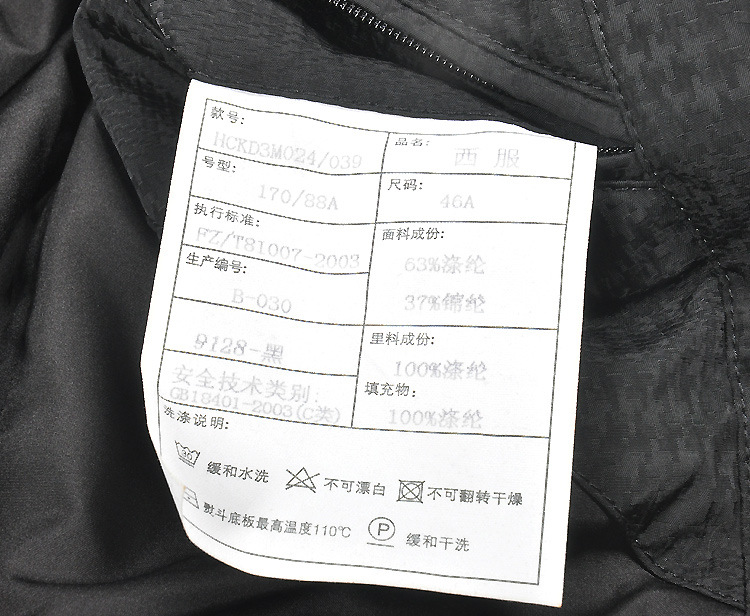 款号:
HCKD3M024/039
品名:
西服
号型:
170/88A
尺码:
46A
执行标准:
FZ/T81007-2003
面料成份:
63%涤纶
37%锦纶
生产编号:
B-030
9128-黑
里料成份:
100%涤纶
安全技术类别:
GB18401-2003(C类)
填充物:
100%涤纶
洗涤说明:
30
缓和水洗
不可漂白
不可翻转干燥
熨斗底板最高温度110℃
P
缓和干洗